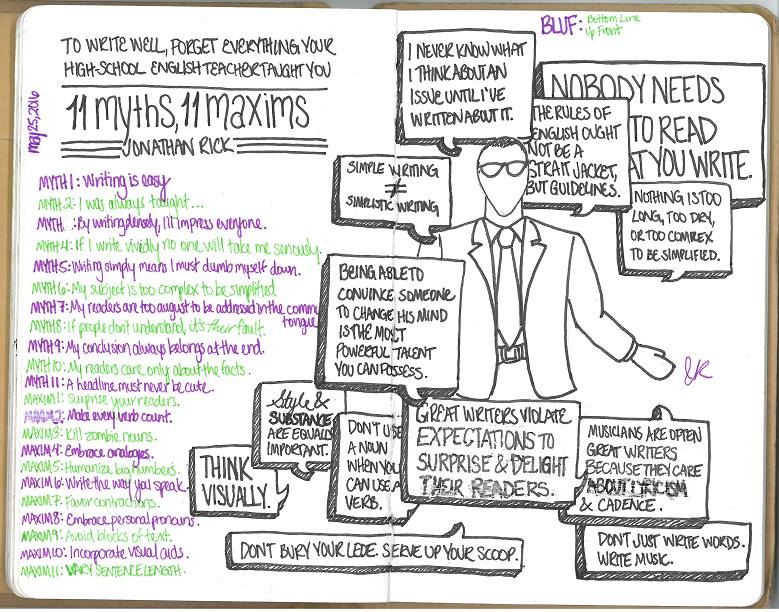 TO WRITE WELL, FORGET EVERYTHING YOUR
HIGH-SCHOOL ENGLISH TEACHER TAUGHT YOU
11 myths, 11 maxims
JONATHAN RICK
may 25, 2016
MYTH 1: Writing is easy
MYTH 2: I was always taught...
MYTH : By writing densely, I'll impress everyone.
MYTH 4: If I write vividly no one will take me seriously.
MYTH 5: Writing simply means I must dumb myself down.
MYTH 6: My subject is too complex to be simplified
MYTH 7: My readers are too august to be addressed in the common
tongue
MYTH 8: If people don't understand, it's their fault.
MYTH 9: My conclusion always belongs at the end.
MYTH 10: My readers care only about the facts.
MYTH 11: A headline must never be cute.
MAXIM 1: surprise your readers.
MAXIM 2: Make every verb count.
MAXIM 3: Kill zombie nouns.
MAXIM 4: Embrace analogies.
MAXIM 5: Humanize big numbers.
MAXIM 6: Write the way you speak.
MAXIM 7: Favor contractions.
MAXIM 8: Embrace personal pronouns.
MAXIM 9: Avoid blocks of text.
MAXIM 10: Incorporate visual aids.
MAXIM 11: VARY SENTENCE LENGTH.
BLUF: Bottom Line
Up Front
I NEVER KNOW WHAT
I THINK ABOUT AN
ISSUE UNTIL I'VE
WRITTEN ABOUT IT.
NOBODY NEEDS
TO READ
WHAT YOU WRITE.
THE RULES OF
ENGLISH OUGHT
NOT BE A
STRAIT JACKET,
BUT GUIDELINES.
SIMPLE WRITING
≠
SIMPLISTIC WRITING
NOTHING IS TOO
LONG, TOO DRY,
OR TOO COMPLEX
TO BE SIMPLIFIED.
BEING ABLE TO
CONVINCE SOMEONE
TO CHANGE HIS MIND
IS THE MOST
POWERFUL TALENT
YOU CAN POSSESS.
Style &
SUBSTANCE
ARE EQUALLY
IMPORTANT.
THINK
VISUALLY.
DON'T USE
A NOUN
WHEN YOU
CAN USE A
VERB.
GREAT WRITERS VIOLATE
EXPECTATIONS TO
SURPRISE & DELIGHT
THEIR READERS.
MUSICIANS ARE OFTEN
GREAT WRITERS
BECAUSE THEY CARE
ABOUT LYRICISM
& CADENCE.
DON'T BURY YOUR LEDE. SERVE UP YOUR SCOOP.
DON'T JUST WRITE WORDS.
WRITE MUSIC.